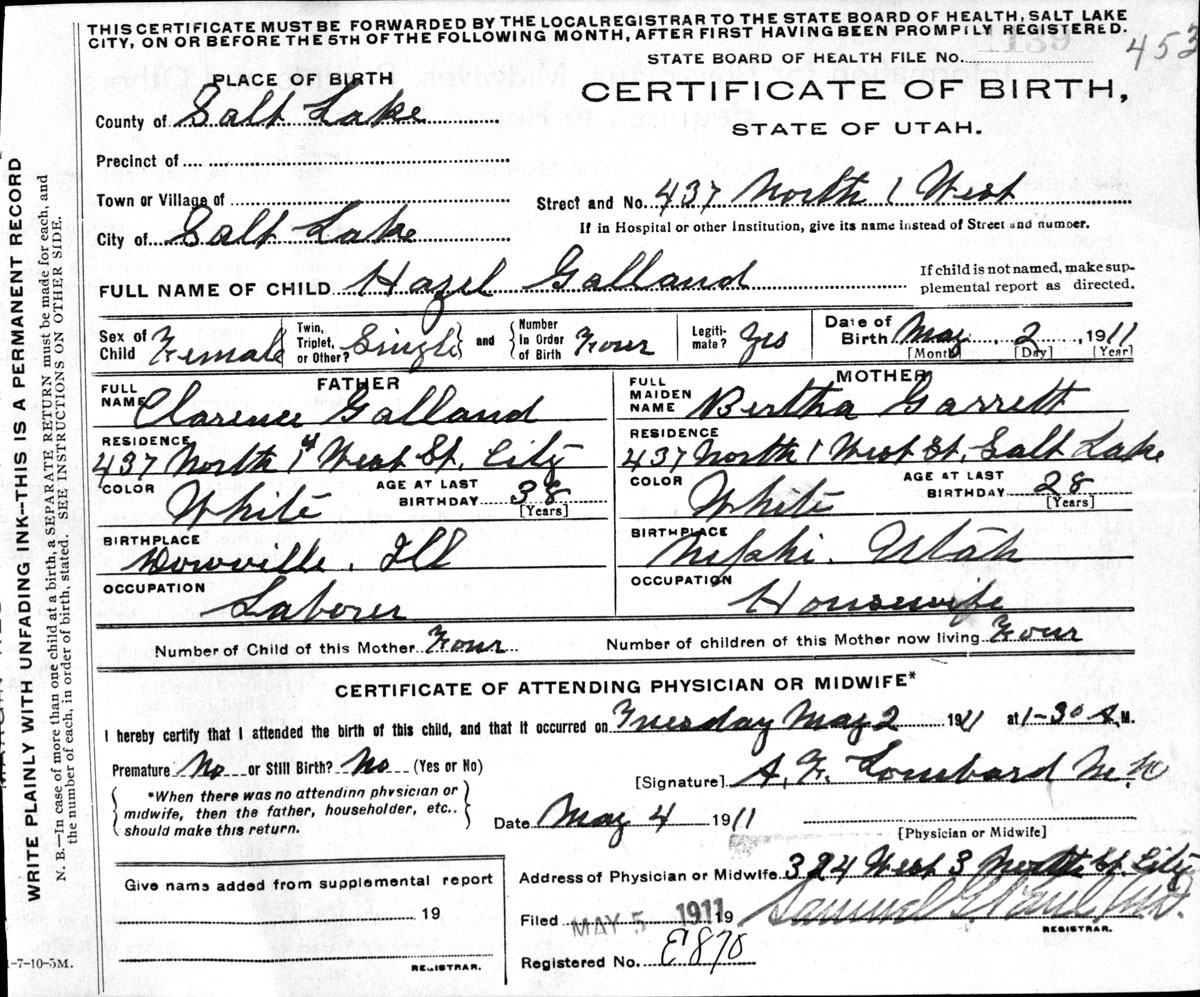 THIS CERTIFICATE MUST BE FORWARDED BY THE LOCAL REGISTRAR TO THE STATE BOARD OF HEALTH, SALT LAKE
CITY, ON OR BEFORE THE 5TH OF THE FOLLOWING MONTH, AFTER FIRST HAVING BEEN PROMPILY REGISTERED.
453
STATE BOARD OF HEALTH FILE No.
PLACE OF BIRTH
CERTIFICATE OF BIRTH,
STATE OF UTAH.
County of Salt Lake
Precinct of
Town or Village of
Street and No. 437 North 1 West
City of Salt Lake
If in Hospital or other Institution, give its name instead of Street and number.
FULL NAME OF CHILD Hazel Galland
If child is not named, make sup-
plemental report as directed.
Sex of Child Female
Twin, Triplet, or Other? Single and Number In Order of Birth Four
Legiti-mate? Yes
Date of Birth May 2, 1911
[Month] [Day] [Year]
FATHER
FULL NAME Clarence Galland
RESIDENCE
437 North 1st West St. City
COLOR White AGE AT LAST BIRTHDAY 38 [Years]
BIRTHPLACE
Ill
OCCUPATION
Laborer
MOTHER
FULL MAIDEN NAME Bertha Garrett
RESIDENCE
437 North 1 West St. Salt Lake
COLOR White AGE AT LAST BIRTHDAY 28 [Years]
BIRTHPLACE
Nephi. Utah
OCCUPATION
Housewife
Number of Child of this Mother Four
Number of children of this Mother now living Four
CERTIFICATE OF ATTENDING PHYSICIAN OR MIDWIFE*
I hereby certify that I attended the birth of this child, and that it occurred on Tuesday May 2 1911 at 1-30 A.M.
Premature No or Still Birth? No (Yes or No)
[Signature] A. F. Lombard M.D
*When there was no attending physician or
midwife, then the father, householder, etc..
should make this return.
Date May 4 1911
[Physician or Midwife]
Address of Physician or Midwife 324 West 3 North St. City
Give name added from supplemental report
19
REGISTRAR.
Filed MAY 5 1911 19
Samuel G. Paul, M.D.
REGISTRAR.
Registered No. E870
1-7-10-5M.
WRITE PLAINLY WITH UNFADING INK--THIS IS A PERMANENT RECORD
N. B.—In case of more than one child at a birth, a SEPARATE RETURN must be made for each, and
the number of each, in order of birth, stated. SEE INSTRUCTIONS ON OTHER SIDE.